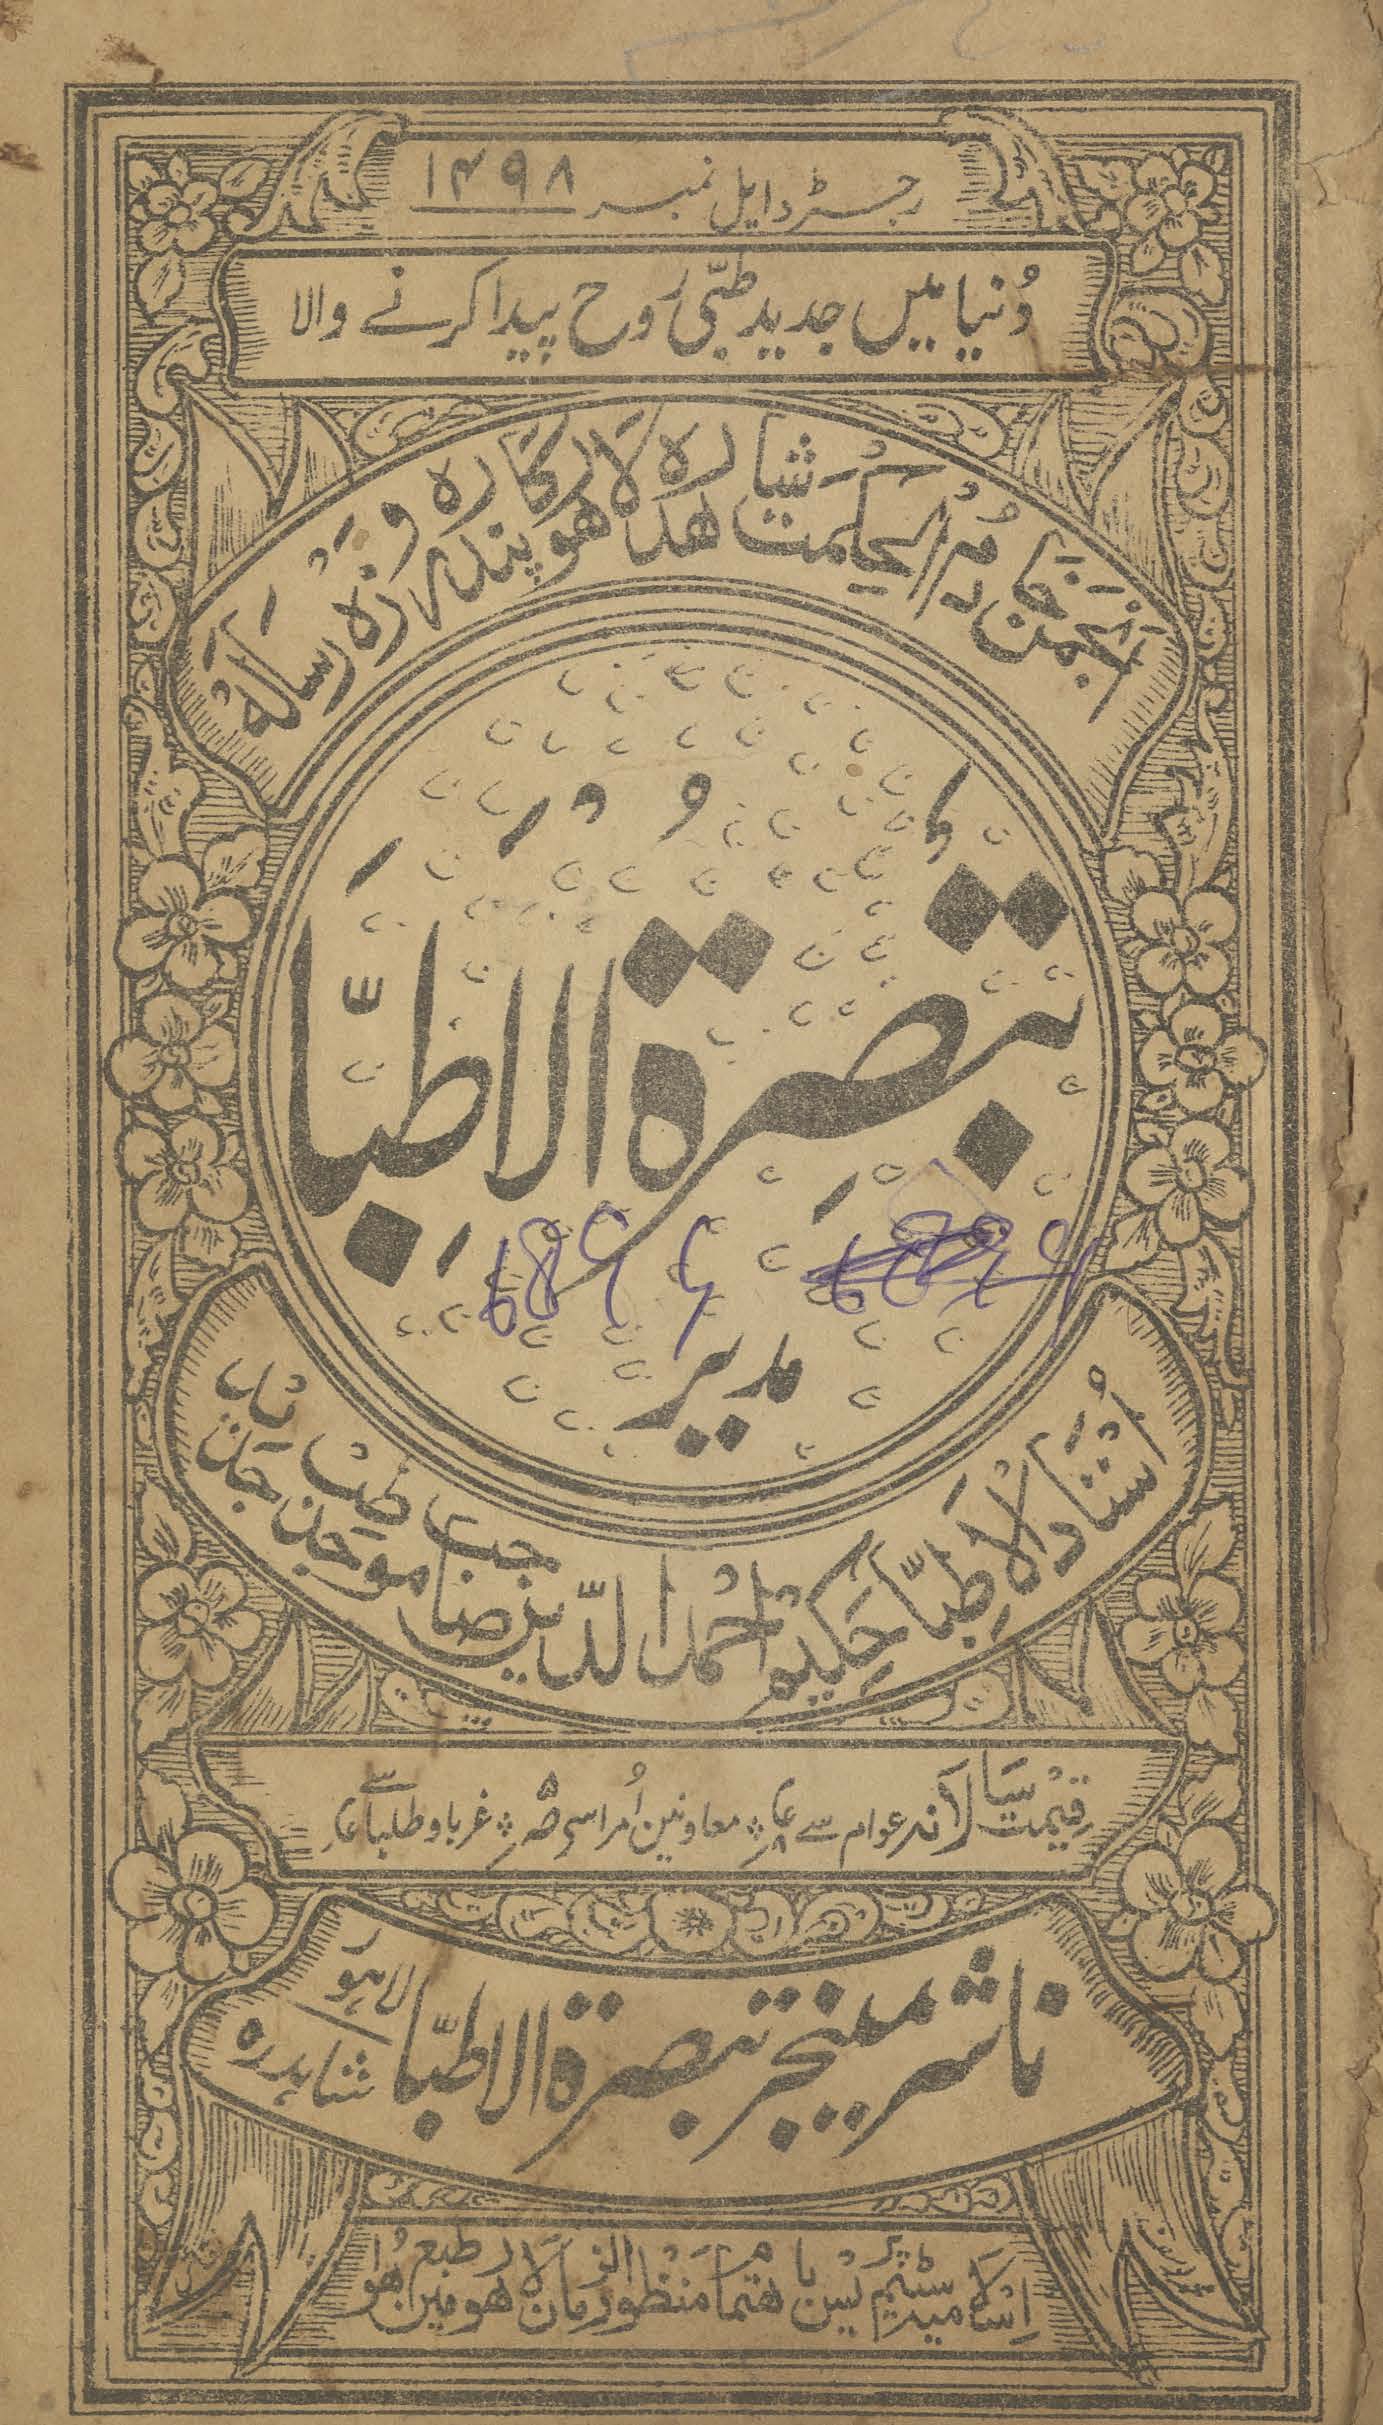 رجسٹرڈ ایل نمبر ۱۴۹۸
دُنیا میں جدید طبّی رُوح پیدا کرنے والا
انجمن خادم الحکمت شاھدرہ لاھور کا پندرہ روزہ رسالہ
تبصرۃ الاطبّا
6896
مدیر
اُستاد الاطبّا حکیم احمد الدّین صاحب موجد طب جدید
قیمت سالانہ عوام سے معاونین اُمرا سے غربا و طلبا سے
ناشر مینیجر تبصرۃ الاطبّا شاہدرہ لاہور
اسلامیہ سٹیم پریس باھتمام منظور الزمان لاھور میں طبع ہُوا